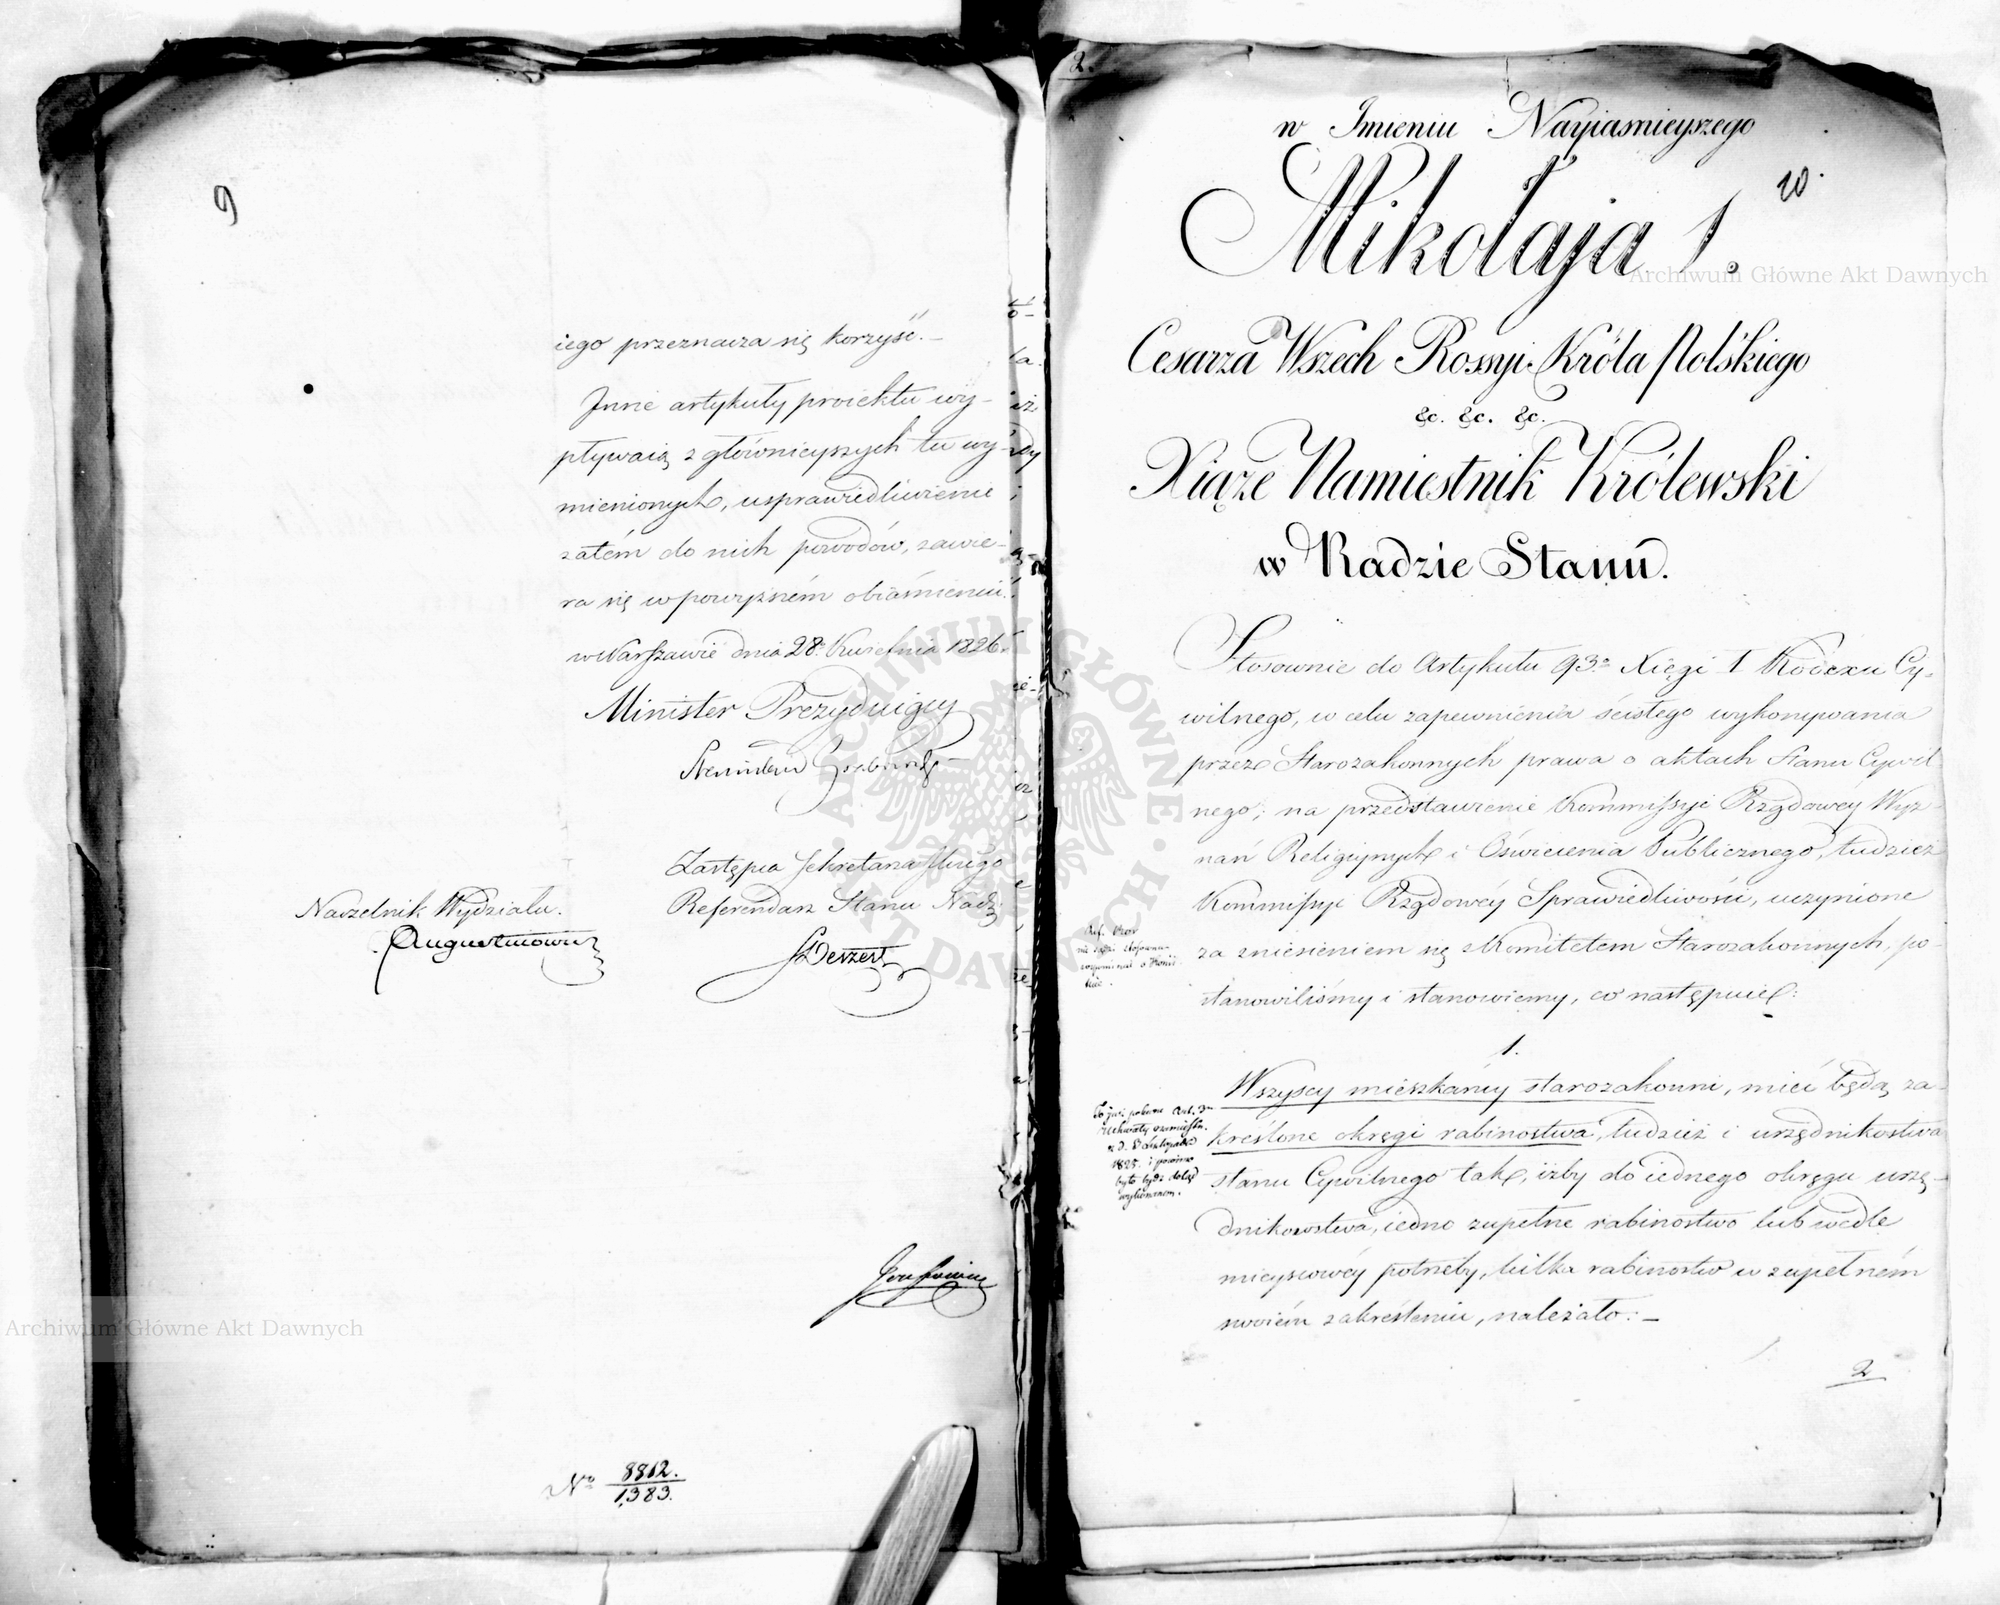 9
iego przeznacza się korzyść.—
Inne artykuły proiektu wy-
pływaią z główniejszych tu wy-
mienionych, usprawiedliwienie
zatém do nich powodów, zawie-
ra się w powyższém obiaśnieniu.
w Warszawie dnia 28. Kwietnia 1826.
Minister Prezyduiący
Stanisław Grabowski
Zastępca Sekretarza
Referendarz Stanu Nadz:
Naczelnik Wydziału.
No 8812./1383.
2.
w Imieniu Nayiasnieyszego
10.
Mikołaja I.
Cesarza Wszech Rossyi Króla Polskiego
&c. &c. &c.
Xiąże Namiestnik Królewski
w Radzie Stanu.
Stosownie do Artykułu 93.o Xięgi I Kodexu Cy-
wilnego, w celu zapewnienia ścisłego wykonywania
przez Starozakonnych prawa o aktach Stanu Cywil-
nego; na przedstawienie Kommissyi Rządowéy Wyz-
nań Religiynych i Oświecenia Publicznego, tudzież
Kommissyi Rządowéy Sprawiedliwości, uczynione
za zniesieniem się z Komitetem Starozakonnych, po-
stanowiliśmy i stanowiemy, co następuie:
1.
Wszyscy mieszkańcy starozakonni, mieć będą za-
kreślone okręgi rabinostwa, tudzież i urzędnikostwa
stanu Cywilnego tak, iżby do iednego okręgu urzę-
dnikowstwa, iedno zupełne rabinostwo lub wedle
mieyscowéy potrzeby, kilka rabinostw w zupełném
swoiém zakreśleniu, należało:—
To już Art. 3
uchwały
1825. i powinno
było bydź dotąd
wykonanem.
2
Archiwum Główne Akt Dawnych
Archiwum Główne Akt Dawnych
ARCHIWUM GŁÓWNE AKT DAWNYCH